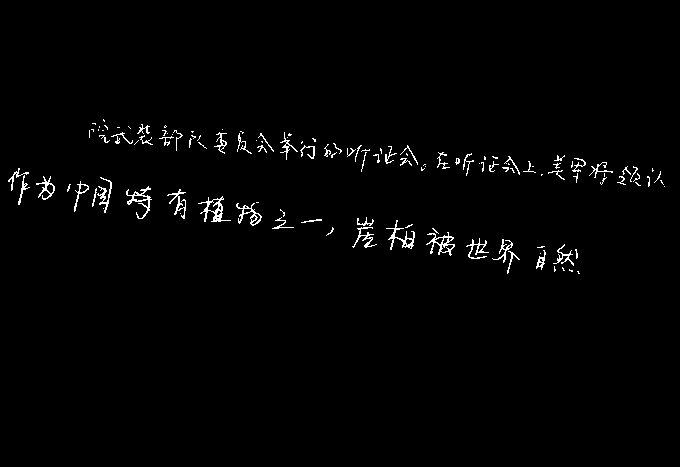 院武装部队委员会举行的听证会。在听证会上,美军将领认
作为中国特有植物之一,崖柏被世界自然